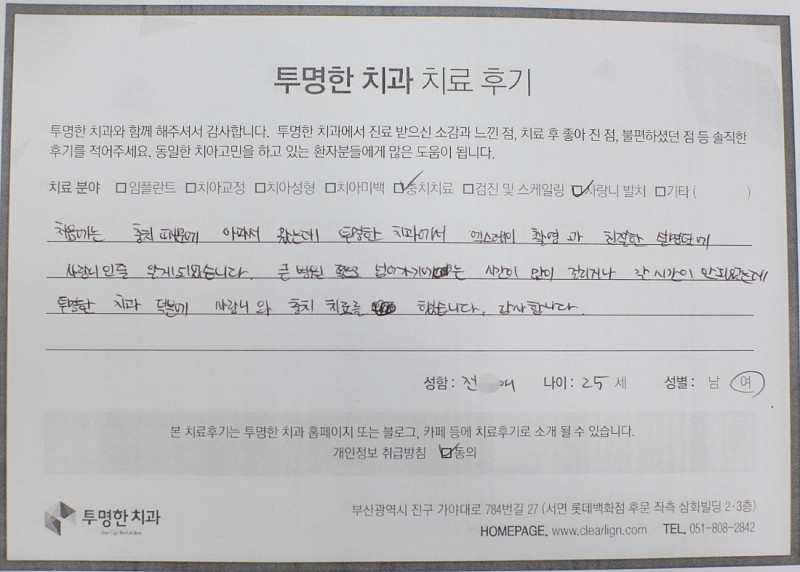 투명한 치과 치료 후기
투명한 치과와 함께 해주셔서 감사합니다. 투명한 치과에서 진료 받으신 소감과 느낀 점, 치료 후 좋아 진 점, 불편하셨던 점 등 솔직한
후기를 적어주세요. 동일한 치아고민을 하고 있는 환자분들에게 많은 도움이 됩니다.
치료 분야 □임플란트 □치아교정 □치아성형 □치아미백 ☑충치치료 □검진 및 스케일링 ☑사랑니 발치 □기타 ( )
처음에는 충치 때문에 아파서 왔는데 투명한 치과에서 엑스레이 촬영과 친절한 설명덕에
사랑니인줄 알게되었습니다. 큰 병원 넘어가기에는 시간이 많이 걸리거나 시간이 안되었는데
투명한 치과 덕분에 사랑니와 충치 치료를 하였습니다. 감사합니다.
성함 : 전 애 나이 : 25 세 성별 : 남 여
본 치료후기는 투명한 치과 홈페이지 또는 블로그, 카페 등에 치료후기로 소개 될 수 있습니다.
개인정보 취급방침 ☑동의
투명한 치과
부산광역시 진구 가야대로 784번길 27 (서면 롯데백화점 후문 좌측 삼화빌딩 2·3층)
HOMEPAGE. www.clearlign.com TEL. 051-808-2842